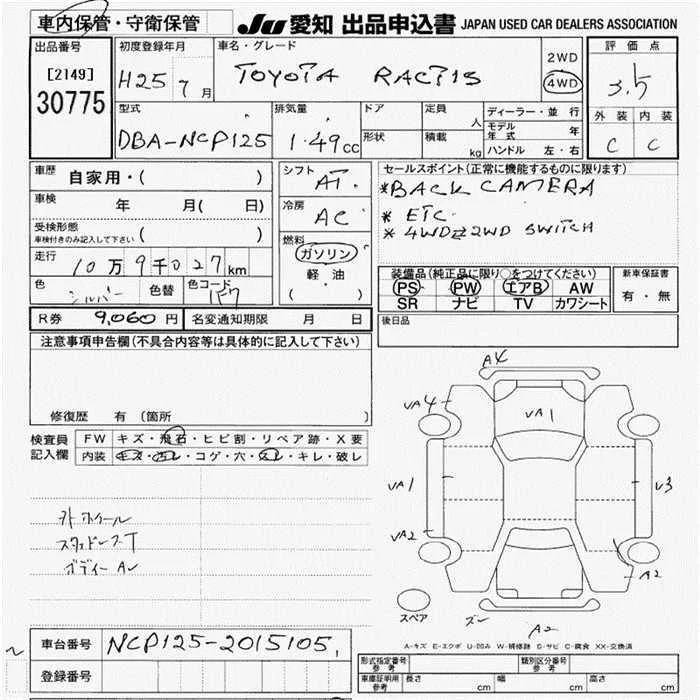 車内保管・守衛保管 JU 愛知 出品申込書 JAPAN USED CAR DEALERS ASSOCIATION
出品番号
[2149]
30775
初度登録年月
H25 7 月
車名・グレード
TOYOTA RACTIS
2WD
4WD
評価点
3.5
外装 内装
C C
型式
DBA-NCP125
排気量
1.49 cc
ドア
形状
定員
人
積載
kg
ディーラー・並行
モデル年式 年
ハンドル 左・右
車歴 自家用・( )
車検 年 月( 日)
受検形態
車検付きのみ記入して下さい ( )
走行 10万9千027km
色 シルバー 色替 色コード
シフト AT.
冷房 AC
燃料
ガソリン
軽油
( )
セールスポイント(正常に機能するものに限ります)
*BACK CAMERA
* ETC
* 4WD⇄2WD SWITCH
装備品(純正品に限り○をつけてください)
PS PW エアB AW
SR ナビ TV カワシート
新車保証書
有・無
R券 9,060 円 名変通知期限 月 日
後日品
注意事項申告欄(不具合内容等は具体的に記入して下さい)
修復歴 有(箇所 )
検査員記入欄
FW キズ・飛石・ヒビ割・リペア跡・X要
内装 キズ・汚レ・コゲ・穴・スレ・キレ・破レ
外ホイール
スタッドレスT
ボディー AU
A4
UA4
UA1
UA1
U3
UA2
A2
スペア
スレ
A2
A-キズ E-エクボ U-凹み W-補修跡 S-サビ C-腐食 XX-交換済
車台番号 NCP125-2015105
登録番号
形式指定番号 参考
類別区分番号 参考
車庫証明用 参考 長さ cm 幅 cm 高さ cm